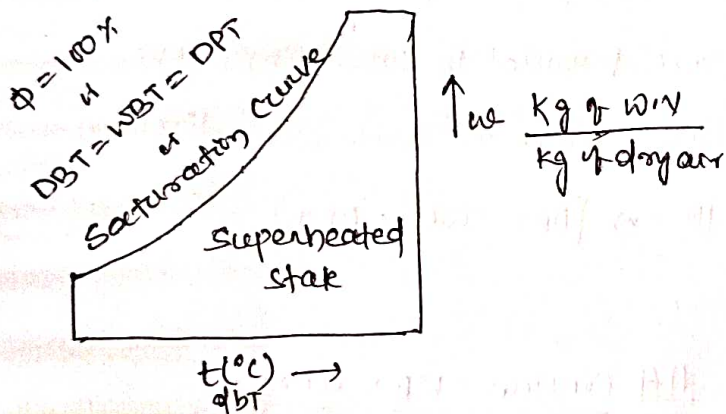 Φ = 100%
or
DBT = WBT = DPT
or
Saturation curve
↑ω kg of W.V
kg of dry air
Superheated
state
t(°C) →
dbT